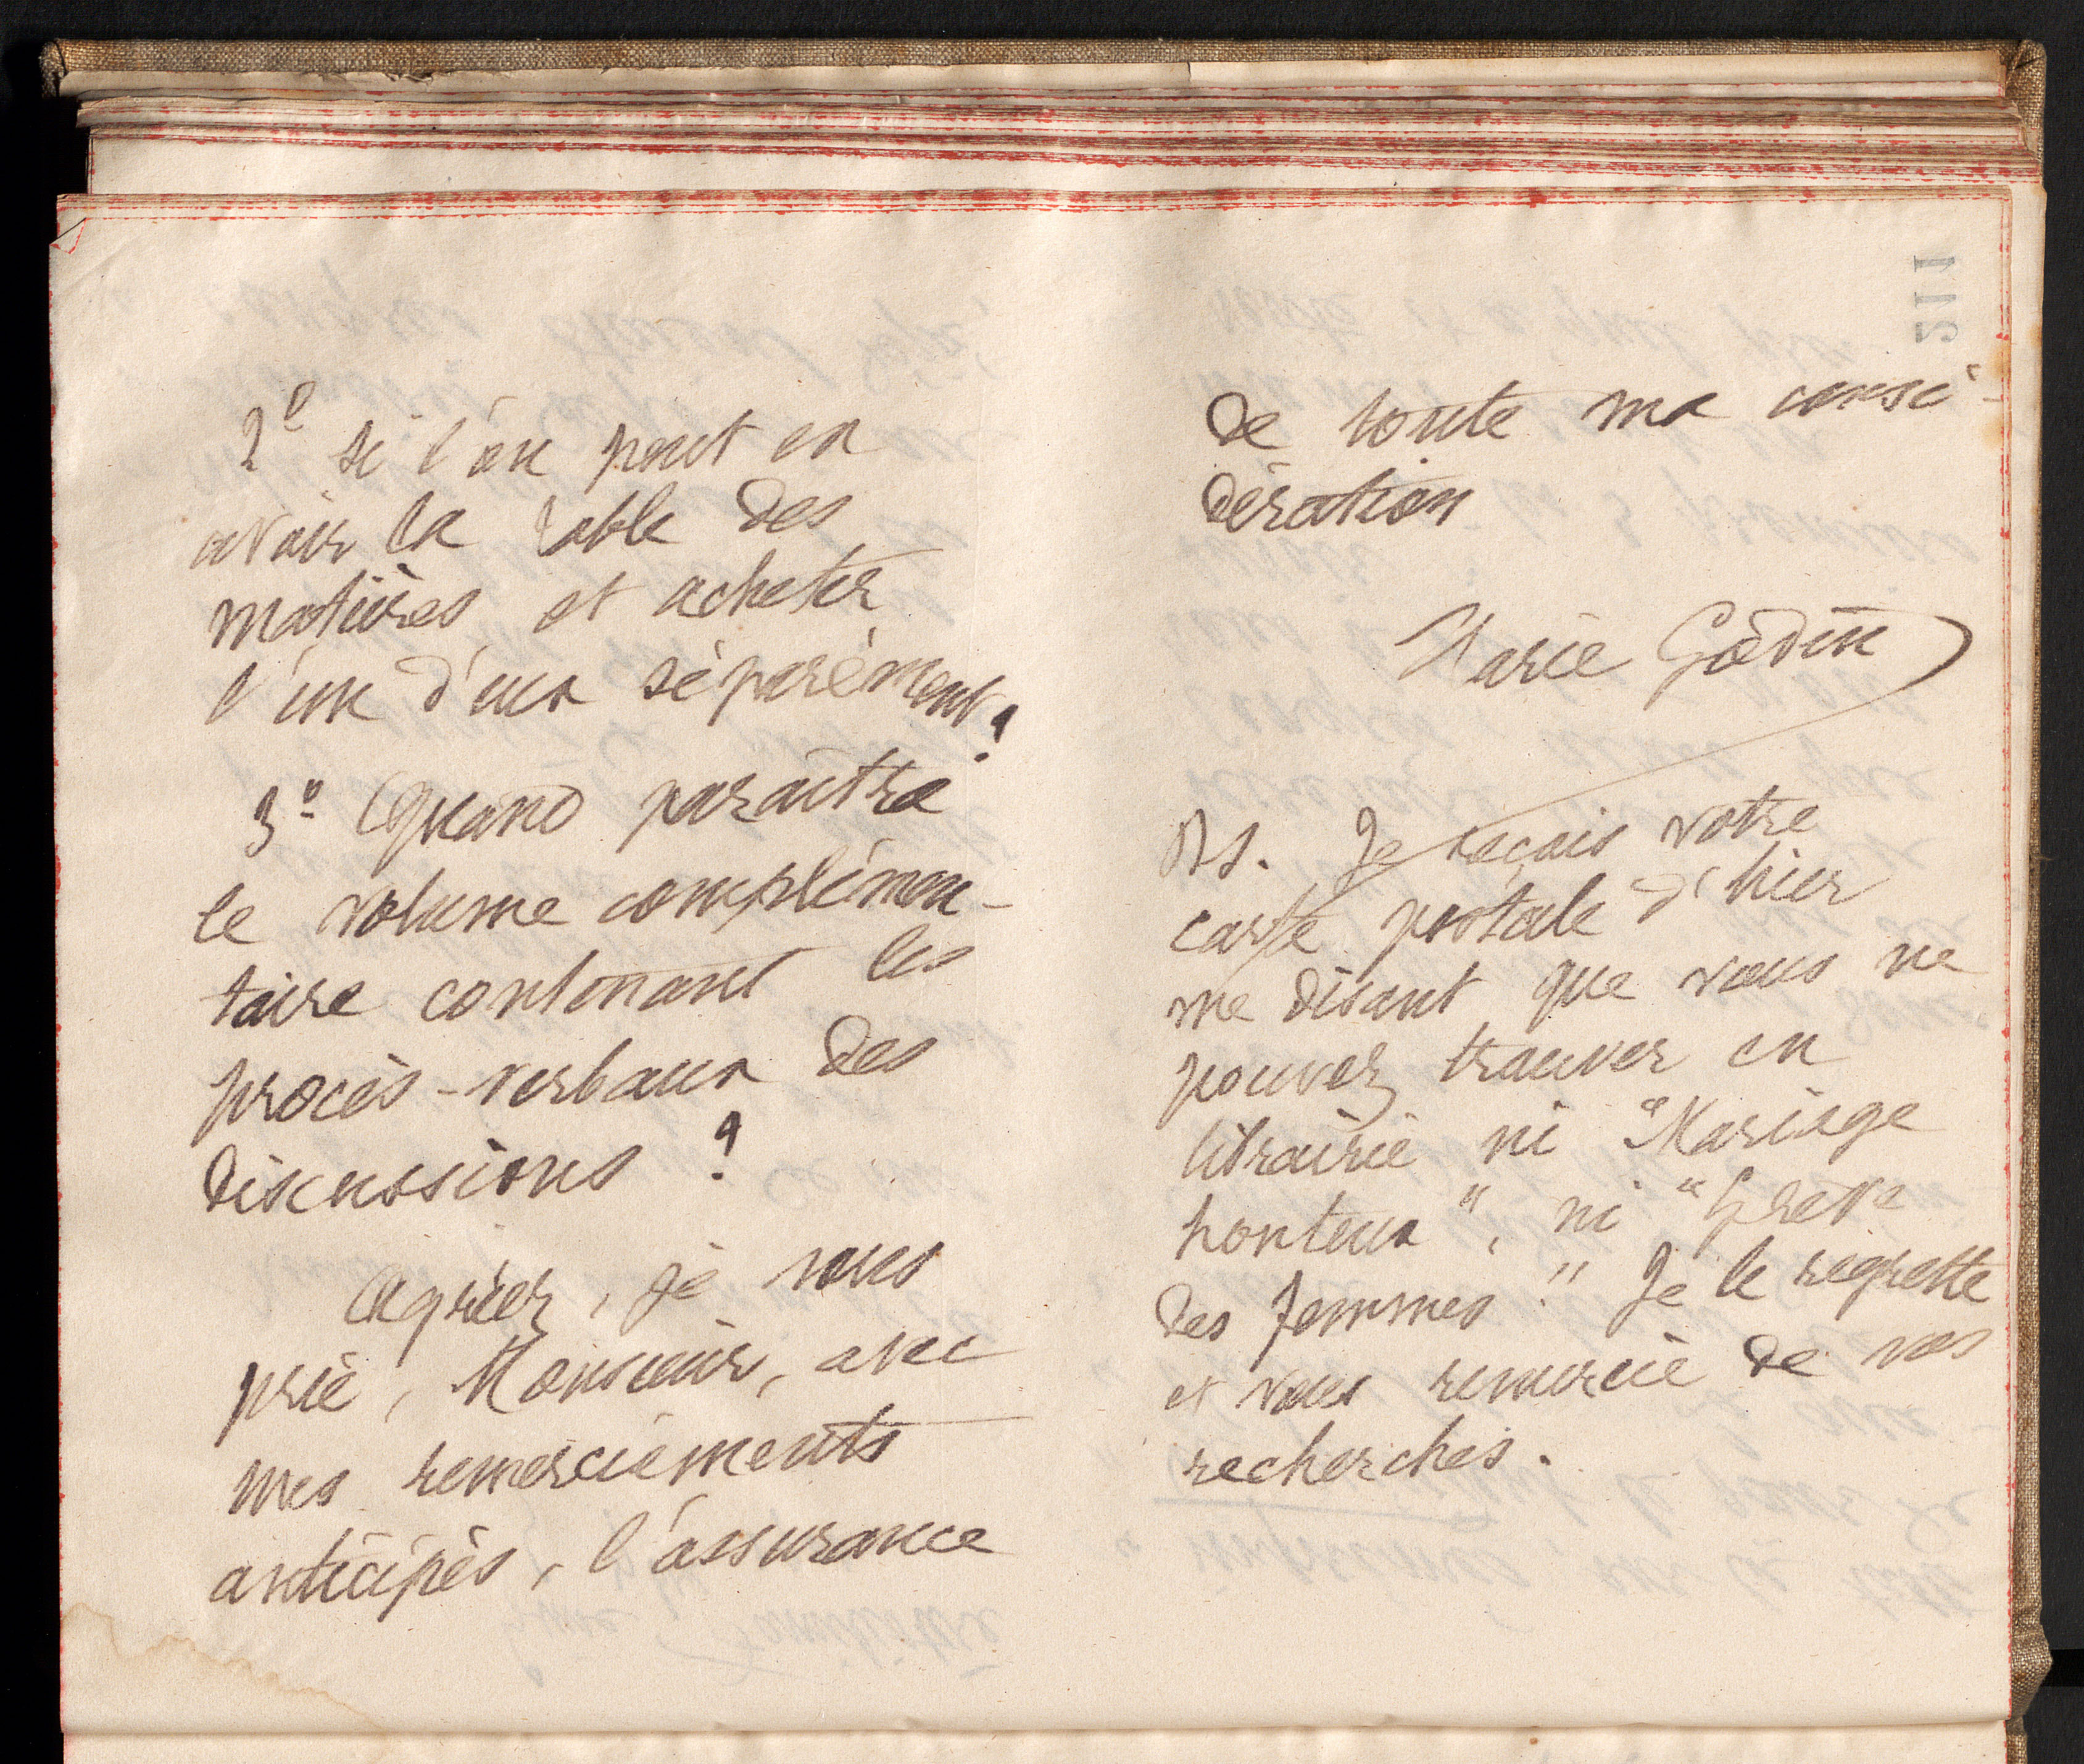 2° si l'on peut en
avoir la table des
matières et acheter
l'un d'eux séparément?
3° Quand paraîtra
le volume complémen-
taire contenant les
procès-verbaux des
discussions ?
Agréez, je vous
prie, Monsieur, avec
mes remerciements
anticipés, l'assurance
de toute ma consi-
dération
Marie Godin
PS. Je reçois votre
carte postale d'hier
me disant que vous ne
pouvez trouver en
librairie ni "Mariage
honteux", ni "Grève
des femmes". Je le regrette
et vous remercie de vos
recherches.
211